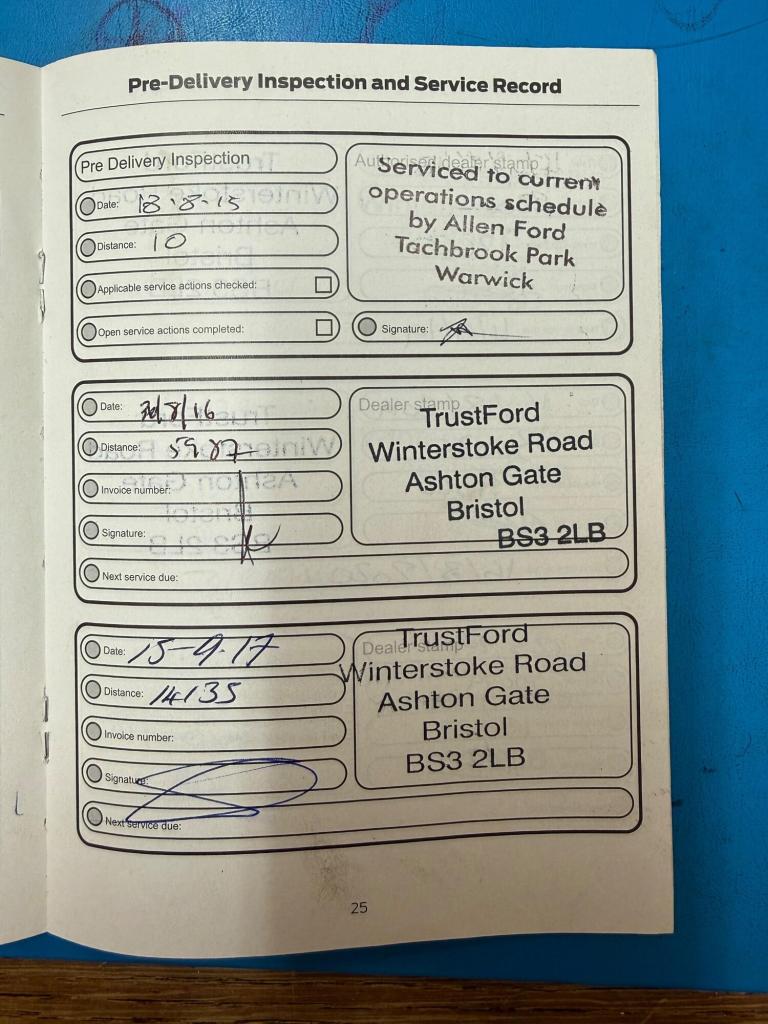 Pre-Delivery Inspection and Service Record
Pre Delivery Inspection
Date: 18.8.15
Distance: 10
Applicable service actions checked:
Open service actions completed:
Authorised dealer stamp
Serviced to current
operations schedule
by Allen Ford
Tachbrook Park
Warwick
Signature:
Date: /8/16
Distance:
Invoice number:
Signature:
Next service due:
Dealer stamp
TrustFord
Winterstoke Road
Ashton Gate
Bristol
BS3 2LB
Date: 15-9-17
Distance: 14135
Invoice number:
Signature:
Next service due:
Dealer stamp
TrustFord
Winterstoke Road
Ashton Gate
Bristol
BS3 2LB
25